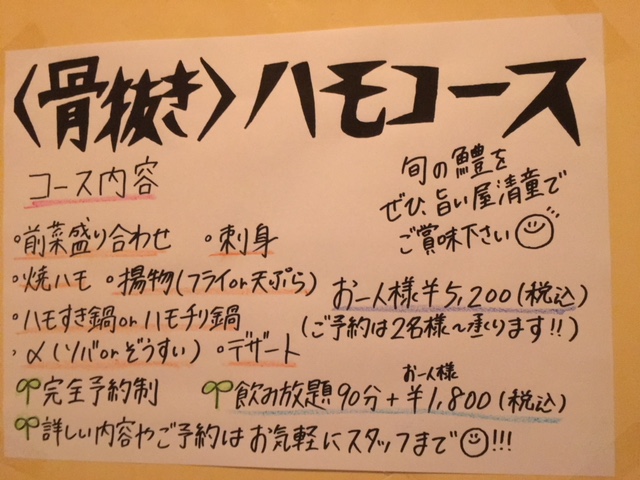 〈骨抜き〉ハモコース
コース内容
旬の鱧を
ぜひ、旨い屋清童で
ご賞味下さい
◦前菜盛り合わせ ◦刺身
◦焼ハモ ◦揚物(フライor天ぷら)
◦ハモすき鍋orハモチリ鍋
◦〆(ソバorぞうすい) ◦デザート
お一人様¥5,200(税込)
(ご予約は2名様〜承ります!!)
完全予約制
お一人様
飲み放題90分+¥1,800(税込)
詳しい内容やご予約はお気軽にスタッフまで!!!